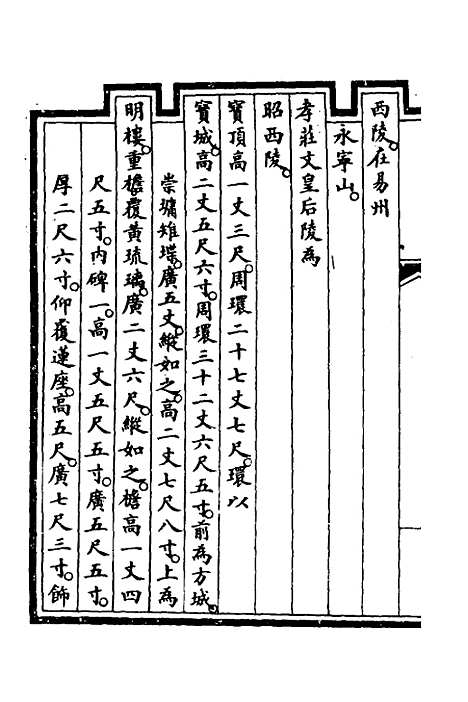 西陵。在易州
永寧山。
孝莊文皇后陵為
昭西陵。
寶頂高一丈三尺。周環二十七丈七尺。環以
寶城。高二丈五尺六寸。周環三十二丈六尺五寸。前為方城。
崇墉雉堞。廣五丈。縱如之。高二丈七尺八寸。上為
明樓。重檐。覆黃琉璃。廣二丈六尺。縱如之。檐高一丈四
尺五寸。內碑一。高一丈五尺五寸。廣五尺五寸。
厚二尺六寸。仰覆蓮座。高五尺。廣七尺三寸。飾